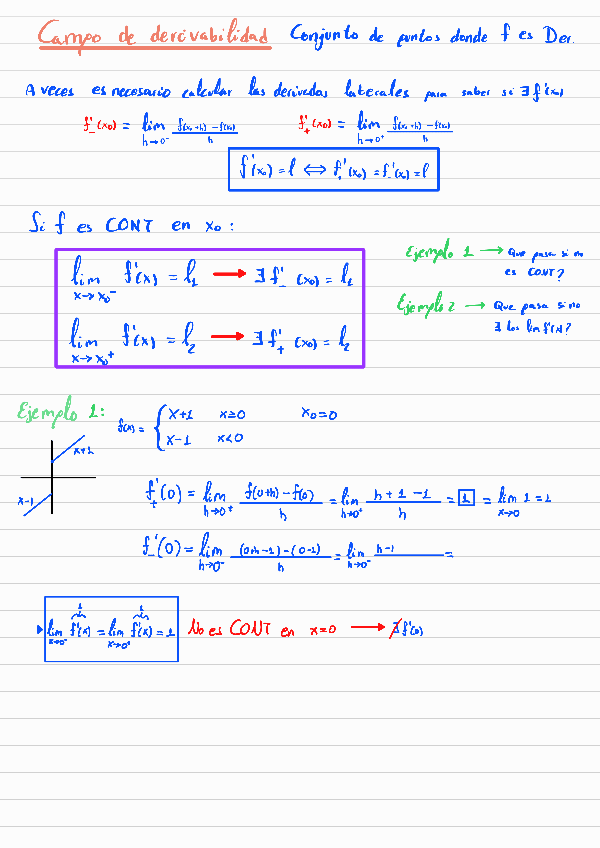 Campo de derivabilidad Conjunto de puntos donde f es Der.
A veces es necesario calcular las derivadas laterales para saber si ∃ f'(x₀)
f'₋(x₀) = lim h→0⁻ (f(x₀+h) - f(x₀))/h f'₊(x₀) = lim h→0⁺ (f(x₀+h) - f(x₀))/h
f'(x₀) = l ⇔ f'₊(x₀) = f'₋(x₀) = l
Si f es CONT en x₀:
lim x→x₀⁻ f'(x) = l₁ → ∃ f'₋(x₀) = l₁
lim x→x₀⁺ f'(x) = l₂ → ∃ f'₊(x₀) = l₂
Ejemplo 1 → Que pasa si no
es CONT?
Ejemplo 2 → Que pasa si no
∃ los lim f'(x)?
Ejemplo 1: f(x) = { x+1 x≥0 x₀=0
x-1 x<0
x+1
x-1
f'₊(0) = lim h→0⁺ (f(0+h) - f(0))/h = lim h→0⁺ (h+1-1)/h = 1 = lim x→0 1 = 1
f'₋(0) = lim h→0⁻ (0+h-1)-(0-1)/h = lim h→0⁻ h-1 =
lim x→0⁻ f'(x) = lim x→0⁺ f'(x) = 1 No es CONT en x=0 → ∄ f'(0)
1 1